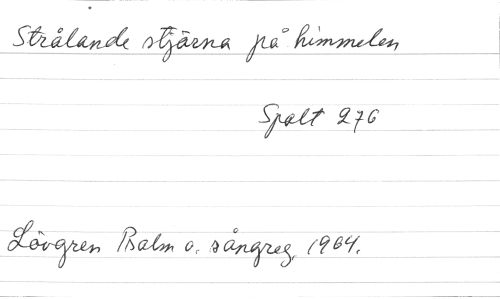 Strålande stjärna på himmelen
Spalt 276
Lövgren Psalm o. sångreg. 1964.